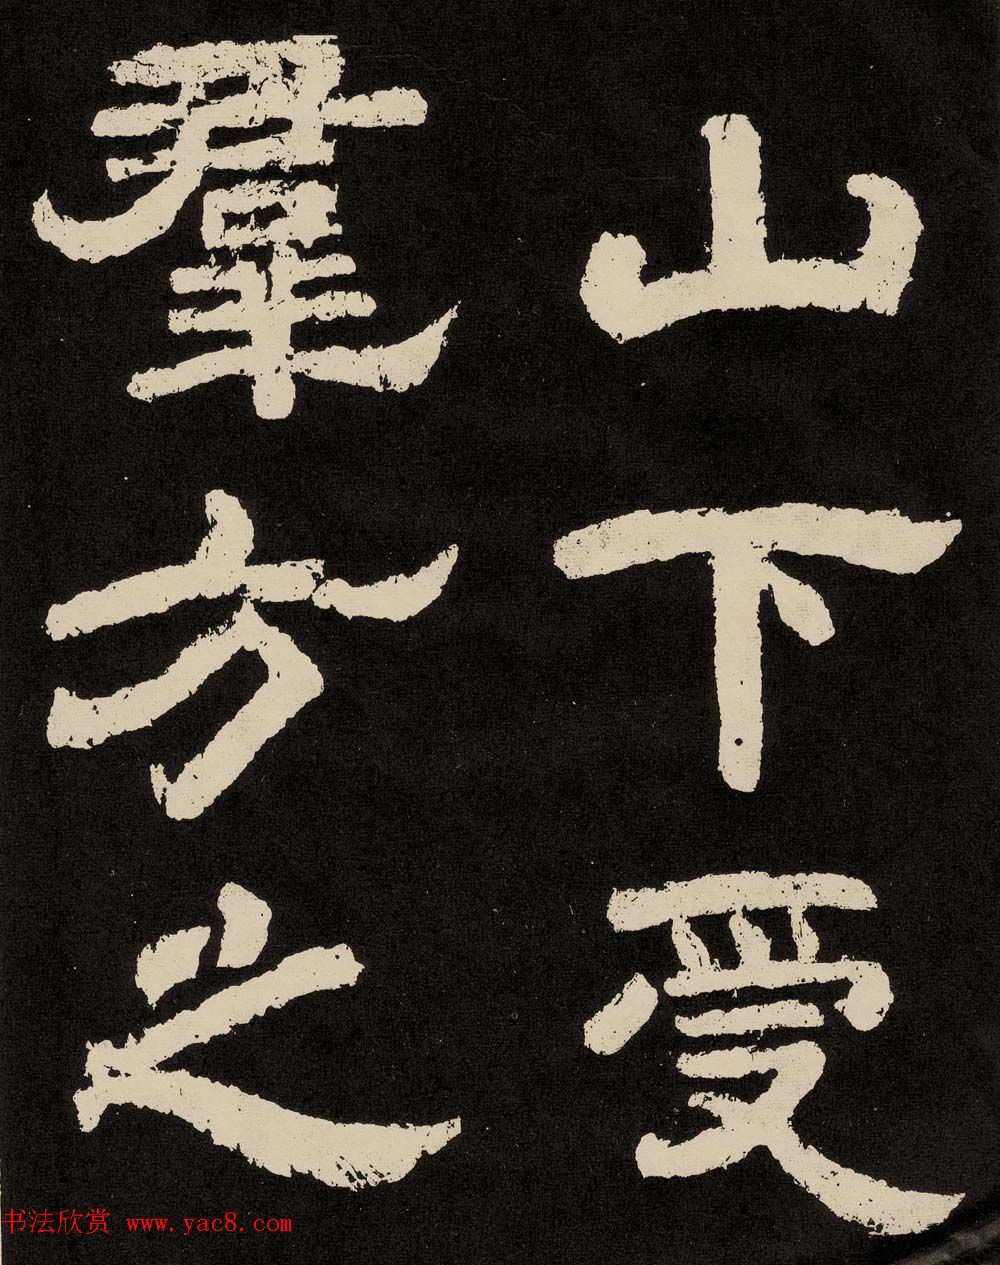 山下受
羣方之
书法欣赏 www.yac8.com